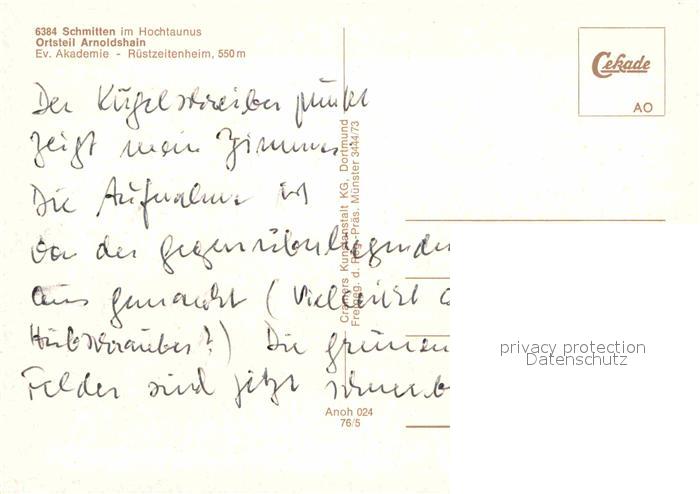 6384 Schmitten im Hochtaunus
Ortsteil Arnoldshain
Ev. Akademie - Rüstzeitenheim, 550 m
Cekade
AO
Der Kugelschreiber punkt
zeigt mein Zimmer.
Die Aufnahme ist
von der gegenüberliegenden
aus gemacht (Vielleicht
Hubschrauber?) Die grünen
Felder sind jetzt
Cramers Kunstanstalt KG, Dortmund
Freigeg. d. Reg.-Präs. Münster 3444/73
Anoh 024
76/5
privacy protection
Datenschutz